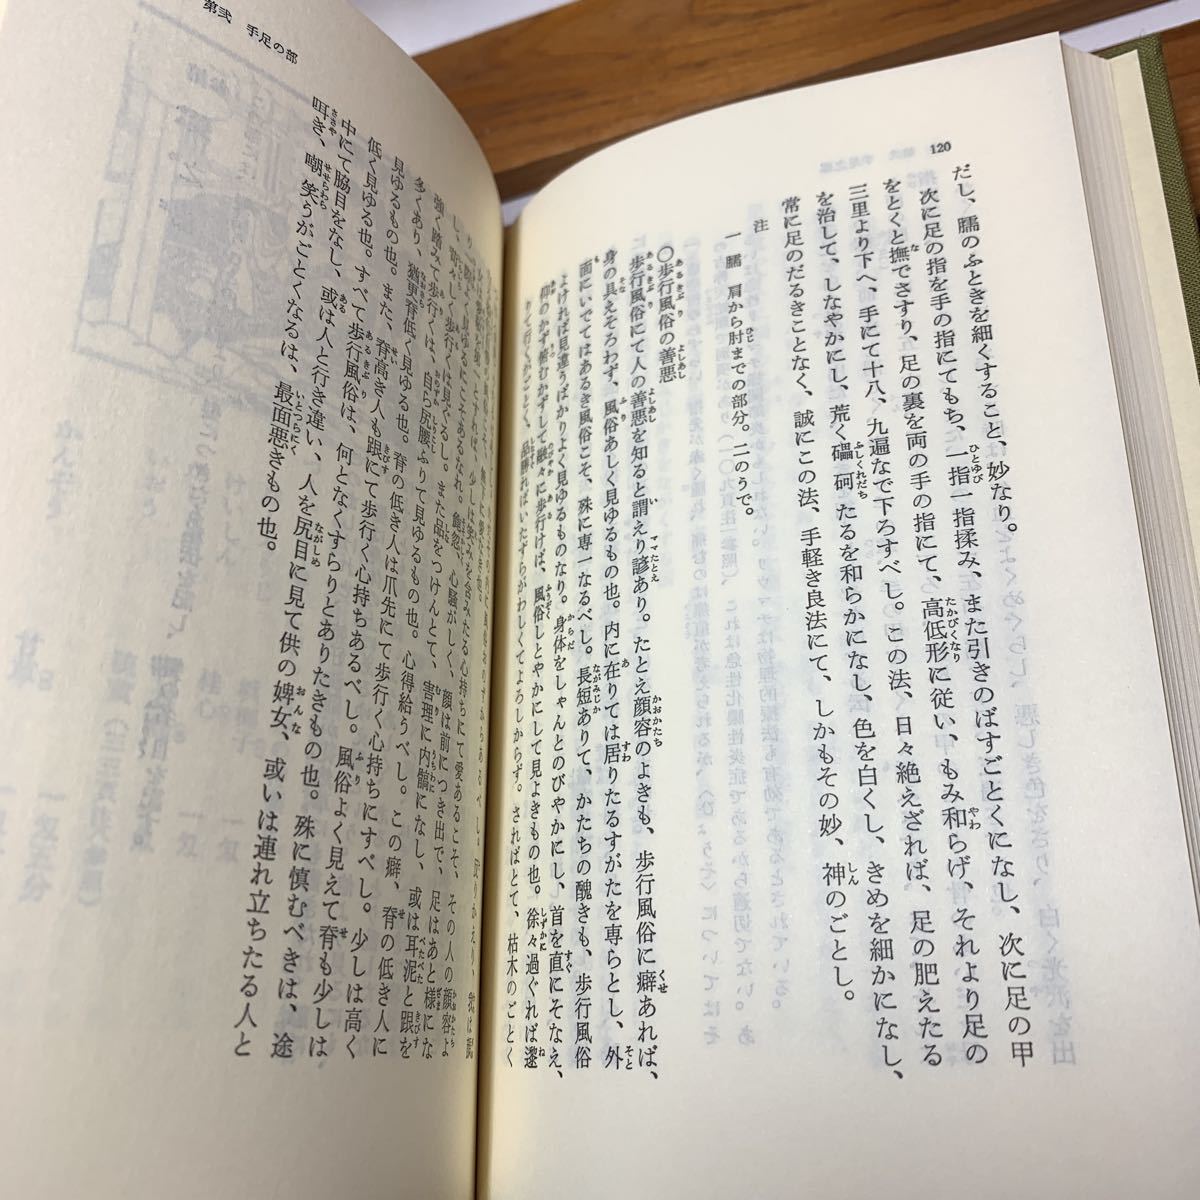 120
だし、臑のふときを細くすること、妙なり。
次に足の指を手の指にてもち、一指一指揉み、また引きのばすごとくになし、次に足の甲
をとくと撫でさすり、足の裏を両の手の指にて、高低形に従い、もみ和らげ、それより足の
三里より下へ、手にて十八、九遍なで下ろすべし。この法、日々絶えざれば、足の肥えたる
を治して、しなやかにし、荒く礧砢たるを和らかになし、色を白くし、きめを細かになし、
常に足のだるきことなく、誠にこの法、手軽き良法にて、しかもその妙、神のごとし。
注
一 臑 肩から肘までの部分。二のうで。
〇歩行風俗の善悪
歩行風俗にて人の善悪を知ると謂えり諺あり。たとえ顔容のよきも、歩行風俗に癖あれば、
身の具えそろわず、風俗あしく見ゆるもの也。内に在りては居りたるすがたを専らとし、外
面にいでてはあるき風俗こそ、殊に専一なるべし。長短ありて、かたちの醜きも、歩行風俗
よければ見違うばかりよく見ゆるものなり。身体をしゃんとのびやかにし、首を直にそなえ、
仰のかず俯むかずして緩々に歩行けば、風俗しとやかにして見よきもの也。徐々過ぐれば邌
りて行くがごとく、品勝ればいたずらがわしくてよろしからず。さればとて、枯木のごとく
第弐 手足の部
し、苛々しく歩行くは見ぐるし。また品をつけんとて、害理に内髄になし、或は耳泥と跟を
強く踏みて歩行くは、自ら尻腰ふりて見ゆるもの也。心得給うべし。この癖、脊の低き人に
多くあり、猶更脊低く見ゆる也。脊の低き人は爪先にて歩行く心持ちにすべし。少しは高く
見ゆるもの也。また、脊高き人も跟にて歩行く心持ちあるべし。風俗よく見えて脊も少しは
低く見ゆる也。すべて歩行風俗は、何となくすらりとありたきもの也。殊に慎むべきは、途
中にて脇目をなし、或は人と行き違い、人を尻目に見て供の婢女、或いは連れ立ちたる人と
咡き、嘲笑うがごとくなるは、最面悪きもの也。